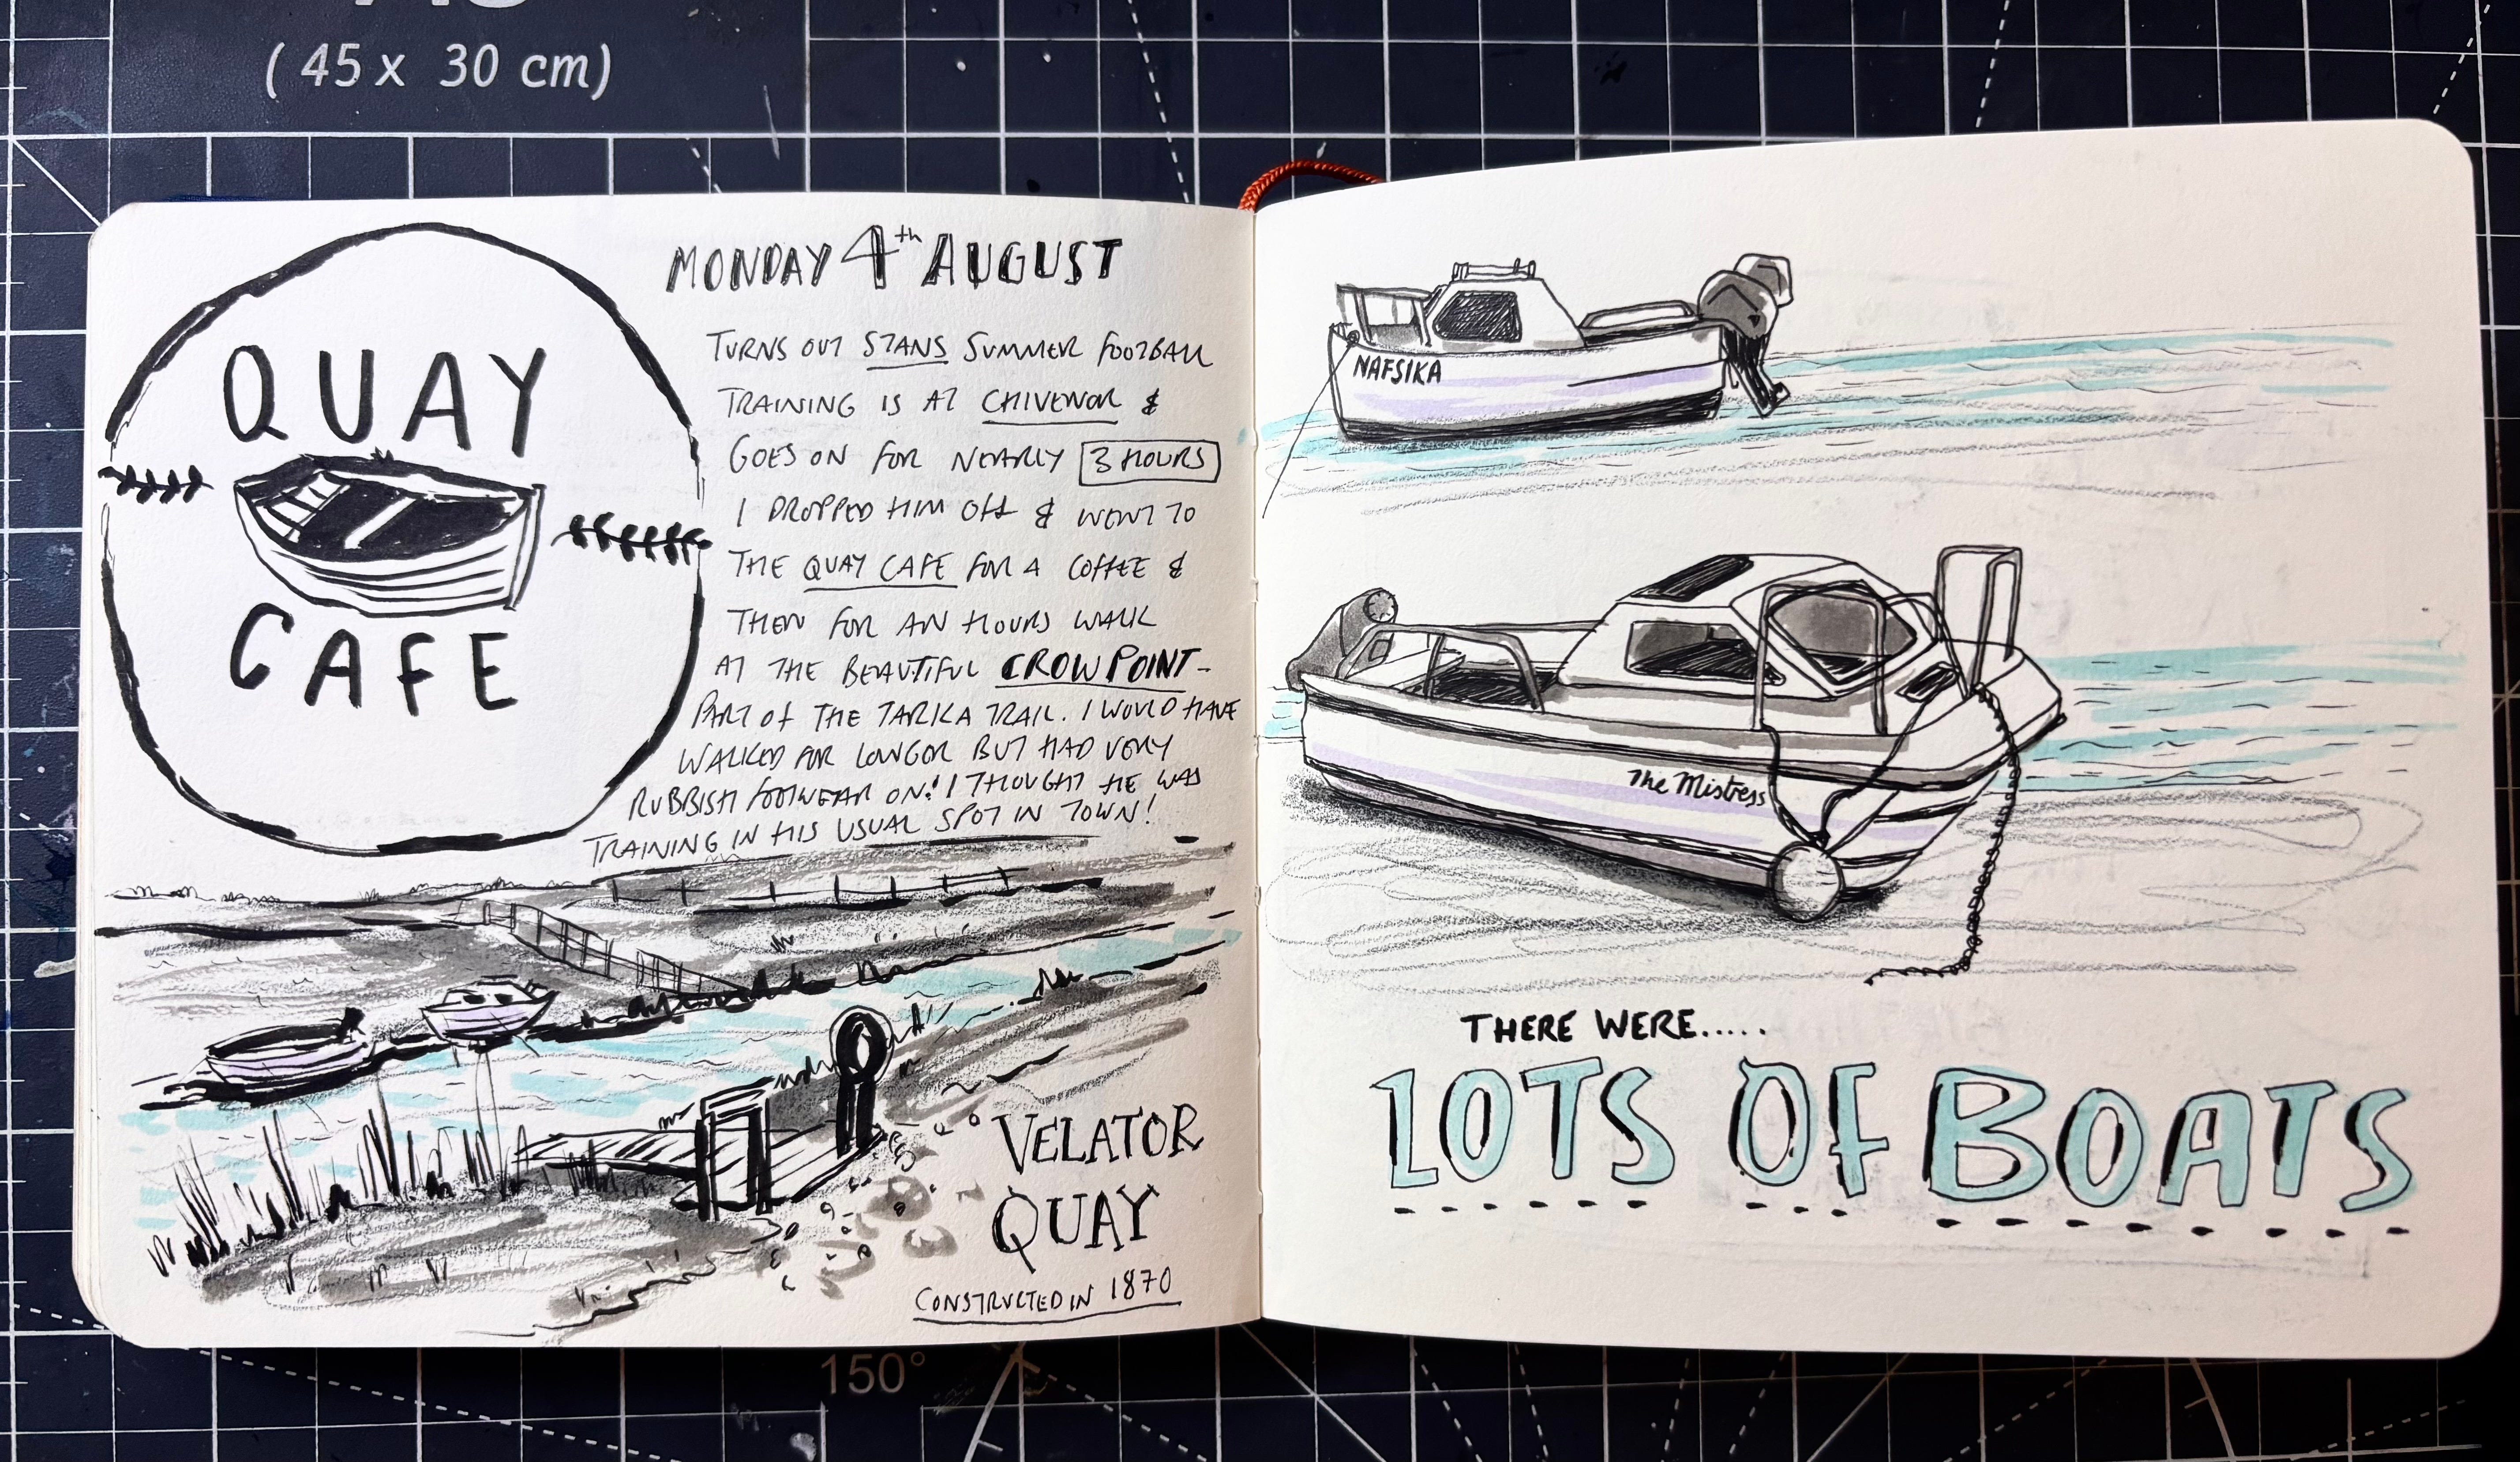 ( 45 x 30 cm)
QUAY
CAFE
MONDAY 4th AUGUST
TURNS OUT STANS SUMMER FOOTBALL
TRAINING IS AT CHIVENOR &
GOES ON FOR NEARLY 3 HOURS
I DROPPED HIM OFF & WENT TO
THE QUAY CAFE FOR A COFFEE &
THEN FOR AN HOURS WALK
AT THE BEAUTIFUL CROW POINT -
PART OF THE TARKA TRAIL. I WOULD HAVE
WALKED FOR LONGER BUT HAD VERY
RUBBISH FOOTWEAR ON! I THOUGHT HE WAS
TRAINING IN HIS USUAL SPOT IN TOWN!
VELATOR
QUAY
CONSTRUCTED IN 1870
NAFSIKA
The Mistress
THERE WERE.....
LOTS OF BOATS
150°